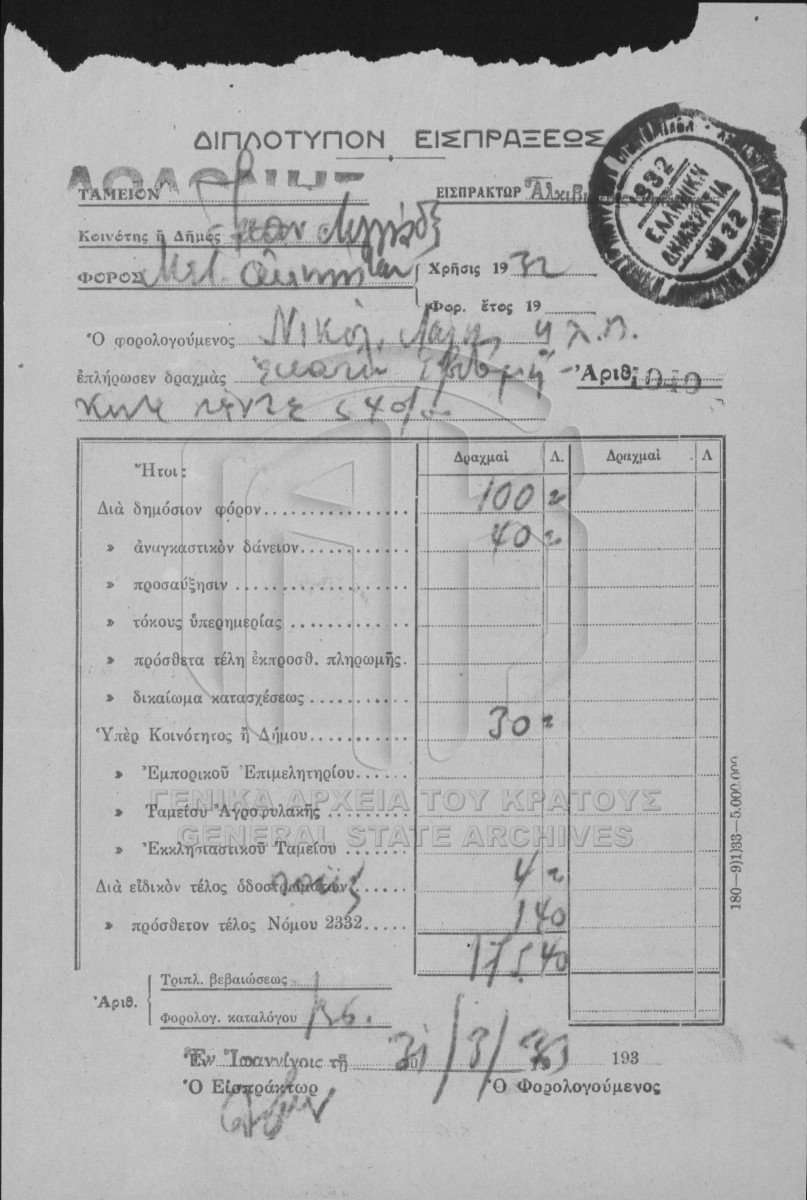 ΔΙΠΛΟΤΥΠΟΝ ΕΙΣΠΡΑΞΕΩΣ
1932
ΕΛΛΗΝΙΚΗ
ΔΗΜΟΚΡΑΤΙΑ
1932
ΤΑΜΕΙΟΝ
ΕΙΣΠΡΑΚΤΩΡ
Κοινότης ἢ Δῆμος
ΦΟΡΟΣ
Χρῆσις 1932
Φορ. ἔτος 19
Ὁ φορολογούμενος Νικόλ.
ἐπλήρωσεν δραχμὰς ἑκατὸν ἑβδομή-
κοντα πέντε ϛ 40/
Ἀριθ. 1040
Ἤτοι:
Δραχμαὶ Λ. Δραχμαὶ Λ
Διὰ δημόσιον φόρον 100
» ἀναγκαστικὸν δάνειον 40
» προσαύξησιν
» τόκους ὑπερημερίας
» πρόσθετα τέλη ἐκπροσθ. πληρωμῆς.
» δικαίωμα κατασχέσεως
Ὑπὲρ Κοινότητος ἢ Δήμου 30
» Ἐμπορικοῦ Ἐπιμελητηρίου
» Ταμείου Ἀγροφυλακῆς
» Ἐκκλησιαστικοῦ Ταμείου
Διὰ εἰδικὸν τέλος ὁδοστρωμάτων 4
» πρόσθετον τέλος Νόμου 2332 1 40
175.40
ΓΕΝΙΚΑ ΑΡΧΕΙΑ ΤΟΥ ΚΡΑΤΟΥΣ
GENERAL STATE ARCHIVES
180—9)1)33—5.000.000
Ἀριθ.
Τριπλ. βεβαιώσεως
Φορολογ. καταλόγου
Ἐν Ἰωαννίνοις τῇ 31/3/33 193
Ὁ Εἰσπράκτωρ
Ὁ Φορολογούμενος